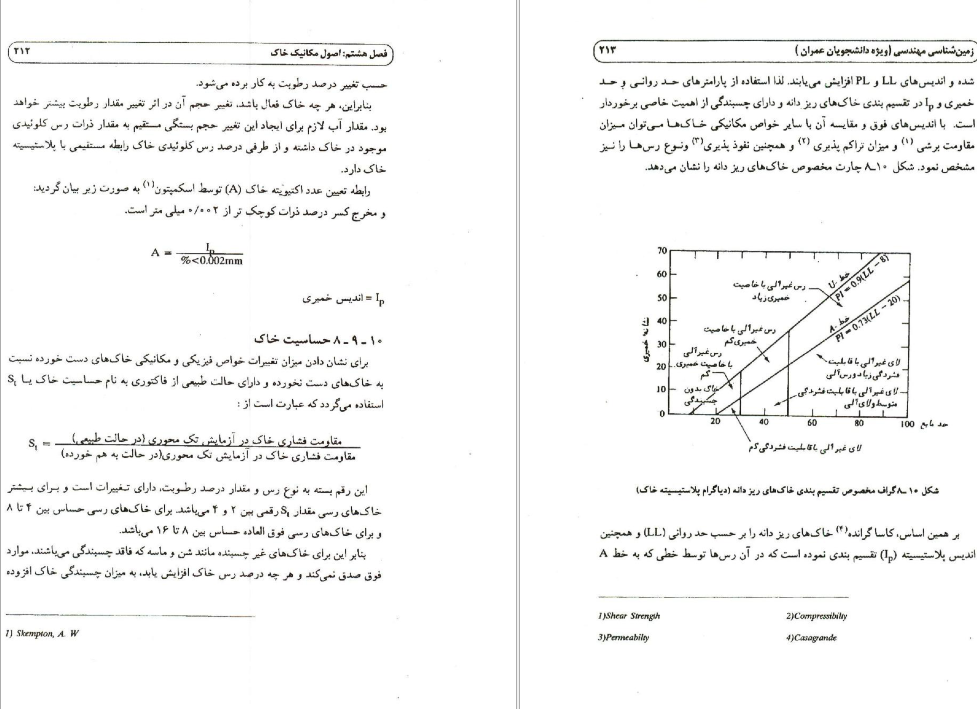 فصل هشتم: اصول مکانیک خاک
۲۱۲
حسب تغییر درصد رطوبت به کار برده می‌شود.
بنابراین، هر چه خاک فعال باشد، تغییر حجم آن در اثر تغییر مقدار رطوبت بیشتر خواهد
بود. مقدار آب لازم برای ایجاد این تغییر حجم بستگی مستقیم به مقدار ذرات رس کلوئیدی
موجود در خاک داشته و از طرفی درصد رس کلوئیدی خاک رابطه مستقیمی با پلاستیسیته
خاک دارد.
رابطه تعیین عدد اکتیویته خاک (A) توسط اسکمپتون(۱) به صورت زیر بیان گردید:
و مخرج کسر درصد ذرات کوچک تر از ۰/۰۰۲ میلی متر است.
A = Ip / %<0.002mm
Ip = اندیس خمیری
۸ـ۹ـ۱۰ حساسیت خاک
برای نشان دادن میزان تغییرات خواص فیزیکی و مکانیکی خاک‌های دست خورده نسبت
به خاک‌های دست نخورده و دارای حالت طبیعی از فاکتوری به نام حساسیت خاک یا St
استفاده می‌گردد که عبارت است از :
St = مقاومت فشاری خاک در آزمایش تک محوری (در حالت طبیعی)
مقاومت فشاری خاک در آزمایش تک محوری(در حالت به هم خورده)
این رقم بسته به نوع رس و مقدار درصد رطوبت، دارای تغییرات است و برای بیشتر
خاک‌های رسی مقدار St رقمی بین ۲ و ۴ می‌باشد. برای خاک‌های رسی حساس بین ۴ تا ۸
و برای خاک‌های رسی فوق العاده حساس بین ۸ تا ۱۶ می‌باشد.
بنابر این برای خاک‌های غیر چسبنده مانند شن و ماسه که فاقد چسبندگی می‌باشند، موارد
فوق صدق نمی‌کند و هر چه درصد رس خاک افزایش یابد، به میزان چسبندگی خاک افزوده
1) Skempton, A. W
زمین‌شناسی مهندسی (ویژه دانشجویان عمران )
۲۱۳
شده و اندیس‌های LL و PL افزایش می‌یابند. لذا استفاده از پارامترهای حد روانی و حد
خمیری و Ip در تقسیم بندی خاک‌های ریز دانه و دارای چسبندگی از اهمیت خاصی برخوردار
است. با اندیس‌های فوق و مقایسه آن با سایر خواص مکانیکی خاک‌ها می‌توان میزان
مقاومت برشی (۱) و میزان تراکم پذیری (۲) و همچنین نفوذ پذیری(۳) ونوع رس‌ها را نیز
مشخص نمود. شکل ۱۰ـ۸ چارت مخصوص خاک‌های ریز دانه را نشان می‌دهد.
70
60
50
40
30
20
10
0
نشانه خمیری
رس غیرآلی با خاصیت
خمیری زیاد
خط U-
PI = 0.9(LL - 8)
خط A-
PI = 0.73(LL - 20)
رس غیرآلی با خاصیت
خمیری کم
رس غیرآلی
با خاصیت خمیری
کم
خاک بدون
چسبندگی
لای غیرآلی با قابلیت
فشردگی زیاد و رس آلی
لای غیرآلی با قابلیت فشردگی
متوسط و لای آلی
20 40 60 80 100
حد مایع
لای غیرآلی با قابلیت فشردگی کم
شکل ۱۰ـ۸گراف مخصوص تقسیم بندی خاک‌های ریز دانه (دیاگرام پلاستیسیته خاک)
بر همین اساس، کاسا گرانده(۴) خاک‌های ریز دانه را بر حسب حد روانی (LL) و همچنین
اندیس پلاستیسیته (Ip) تقسیم بندی نموده است که در آن رس‌ها توسط خطی که به خط A
1)Shear Strength
2)Compressibility
3)Permeabilty
4)Casagrande